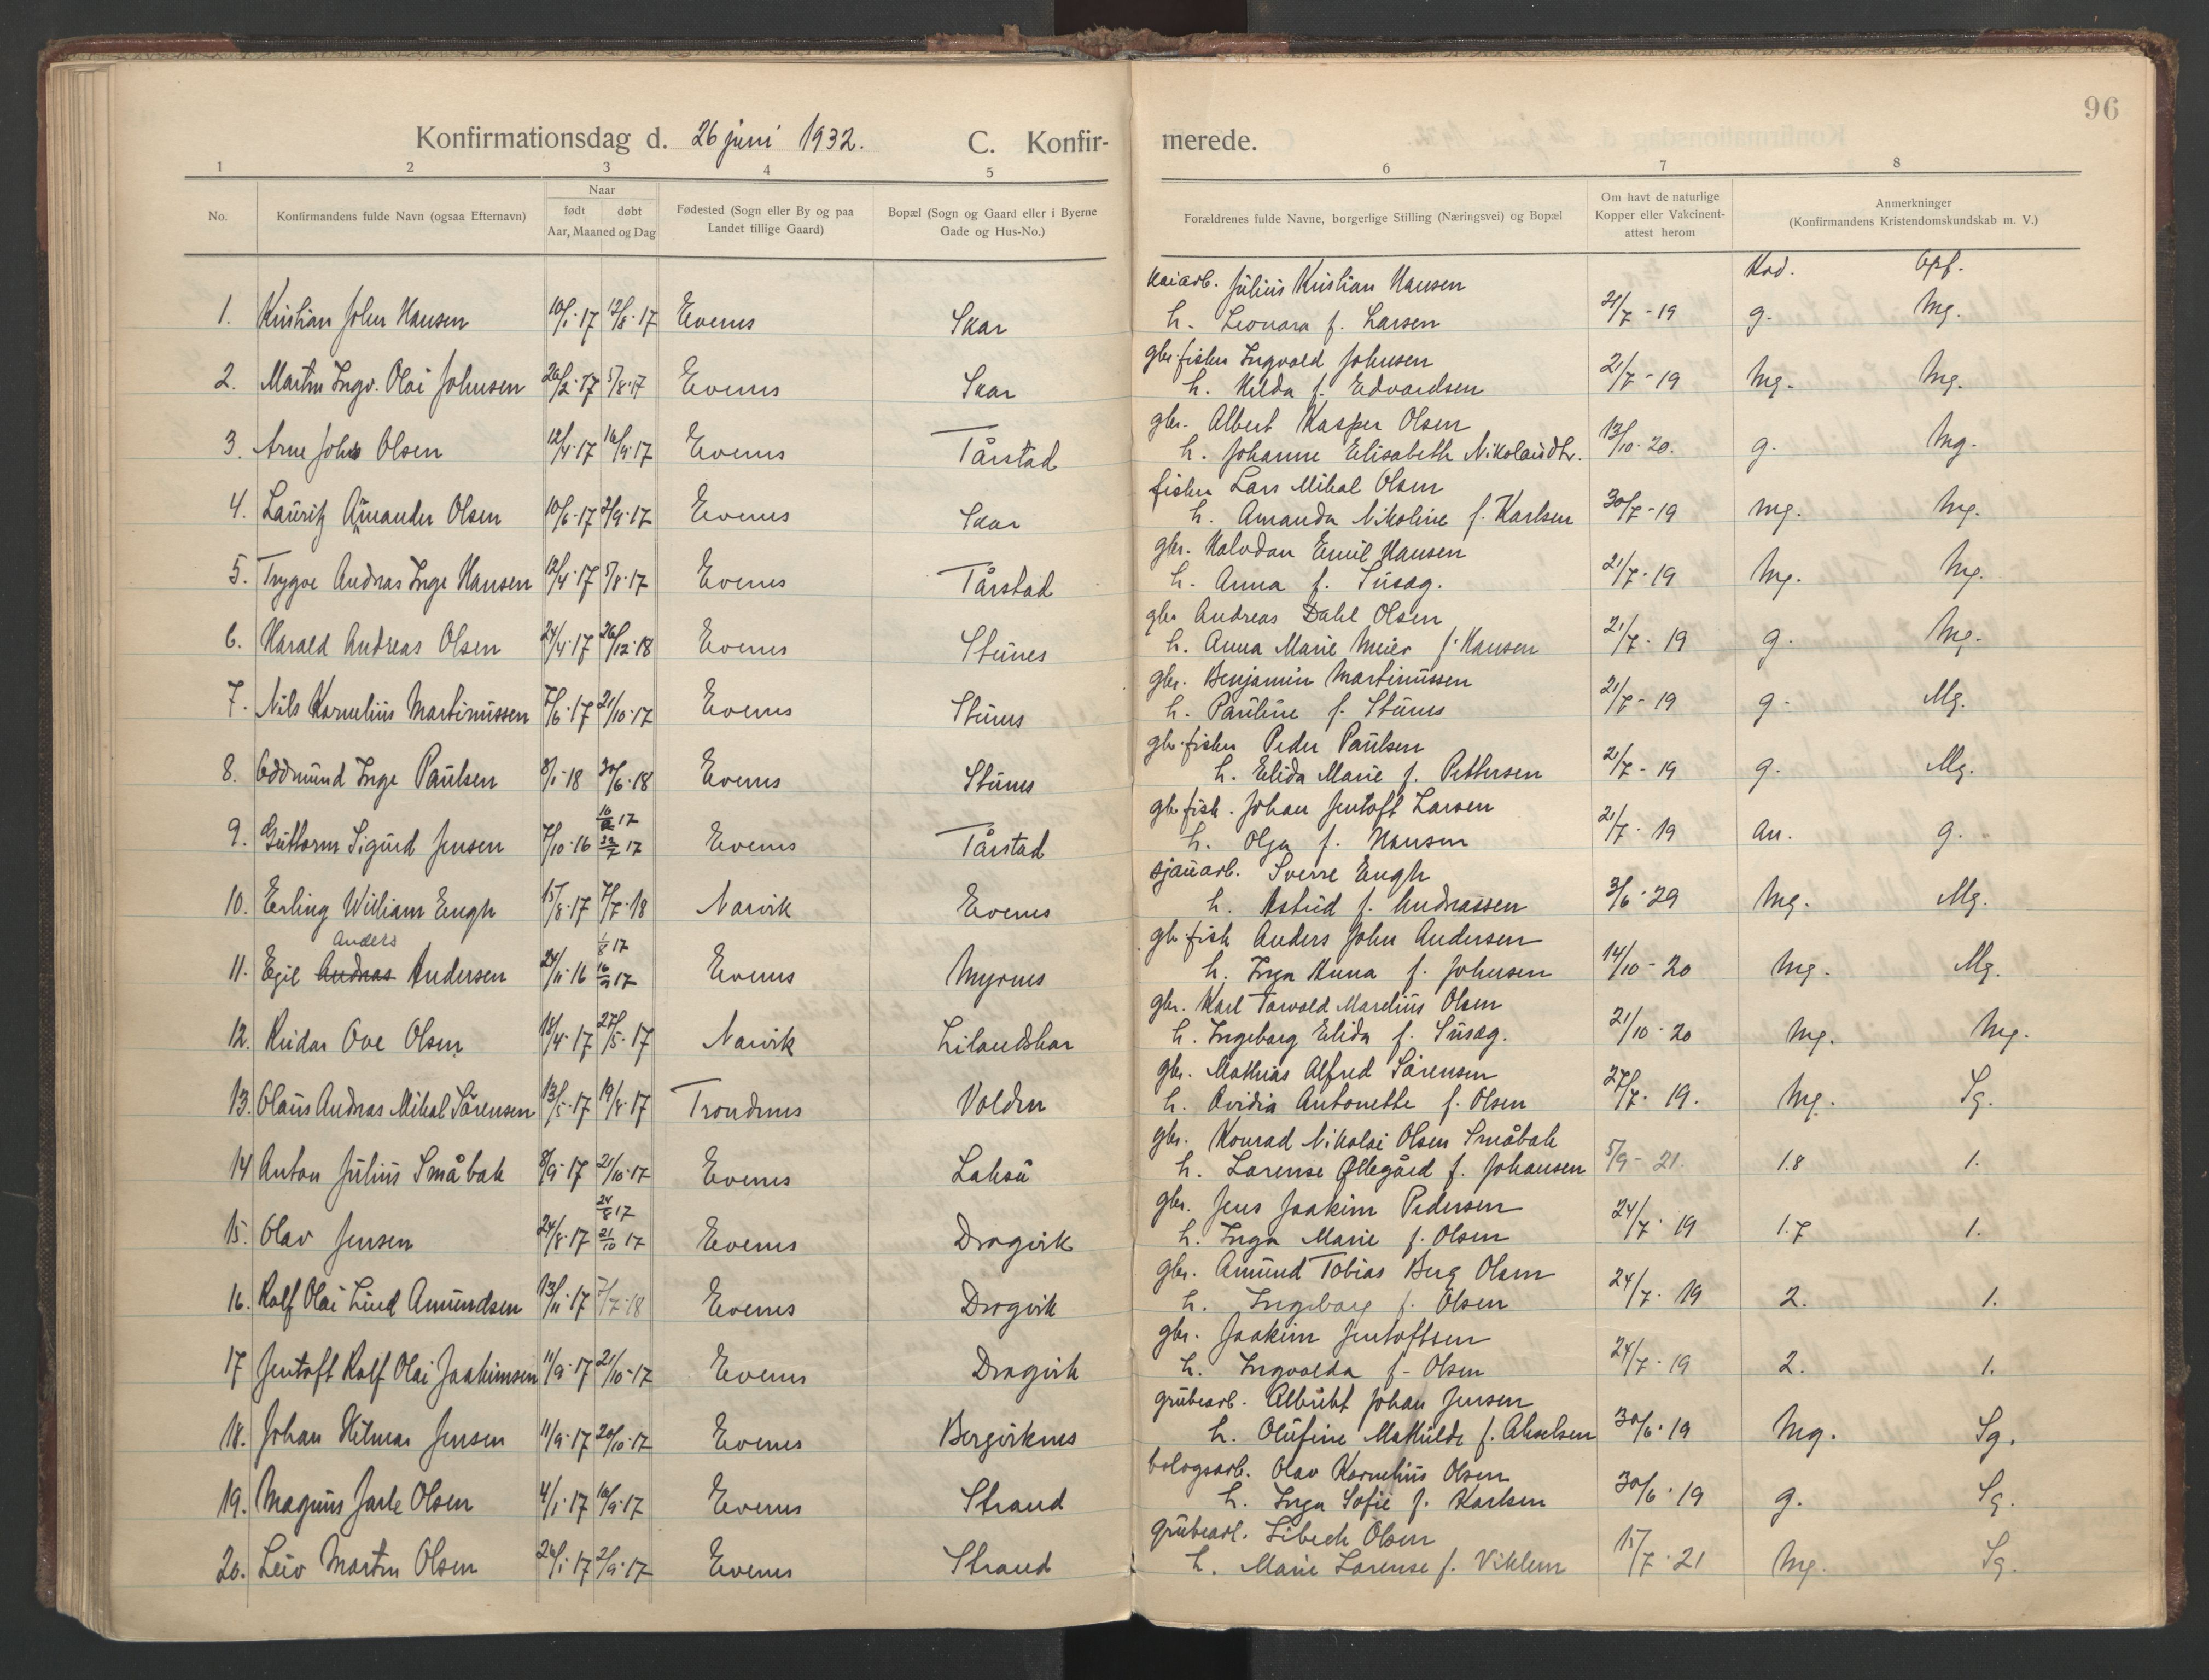 96
Konfirmationsdag d. 26 juni 1932. C. Konfir- merede.
1 2 3 4 5 6 7 8
No. Konfirmandens fulde Navn (ogsaa Efternavn) Naar født døbt Aar, Maaned og Dag Fødested (Sogn eller By og paa Landet tillige Gaard) Bopæl (Sogn og Gaard eller i Byerne Gade og Hus-No.) Forældrenes fulde Navne, borgerlige Stilling (Næringsvei) og Bopæl Om havt de naturlige Kopper eller Vakcinent- attest herom Anmerkninger (Konfirmandens Kristendomskundskab m. V.)
Krd. Opf.
kaiarb. Julius Kristian Hansen
1. Kristian John Hansen 10/1-17 12/8-17 Evenes Skar h. Leonora f. Larsen 21/7-19 g. Mg.
gbr. fisker Ingvald Johnsen
2. Martin Ingv. Olai Johnsen 26/2-17 5/8-17 Evenes Skar h. Hilda f. Edvardsen 21/7-19 Mg. Mg.
gbr. Albert Kasper Olsen
3. Arne John Olsen 12/4-17 16/9-17 Evenes Tårstad h. Johanne Elisabeth Nikolaidtr. 13/10-20. g. Mg.
fisker Lars Mikal Olsen
4. Lauritz Amander Olsen 10/6-17 2/9-17 Evenes Skar h. Amanda Nikoline f. Karlsen 30/7-19 mg. Mg.
gbr. Halvdan Emil Hansen
5. Trygve Andreas Inge Hansen 12/4-17 5/8-17 Evenes Tårstad h. Anna f. Susæg. 21/7-19 Mg. Mg.
gbr Andreas Dahl Olsen
6. Harald Andreas Olsen 24/4-17 26/12-18 Evenes Stunes h. Anna Marie Meier f. Hansen 21/7-19 g. Mg.
gbr. Benjamin Martinussen
7. Nils Kornelius Martinussen 7/6-17 21/10-17 Evenes Stunes h. Pauline f. Stunes 21/7-19 g. Mg.
gbr. fisker Peder Paulsen
8. Oddmund Inge Paulsen 8/1-18 30/6-18 Evenes Stunes h. Elida Marie f. Pettersen 21/7-19 g. Mg.
gbr. fisk. Johan Jentoft Larsen
9. Guttorm Sigurd Jensen 7/10-16 22/7 17 Evenes Tårstad h. Olga f. Hansen 21/7-19 an. g.
sjauarb. Sverre Engh
10. Erling William Engh 15/8-17 7/7-18 Narvik Evenes h. Astrid f. Andreassen 3/6-29 Mg. Mg.
gbr. fisk Anders John Andersen
Anders 1/8 17
11. Egil Andreas Andersen 24/11-16 16/9 17 Evenes Myrnes h. Inga Anna f. Johnsen 14/10-20 Mg. Mg.
gbr. Karl Torvald Marelius Olsen
12. Reidar Ove Olsen 18/4-17 27/5-17 Narvik Lilandskar h. Ingeborg Elida f. Susæg. 21/10-20 Mg. Mg.
gbr. Mathias Alfred Sörensen
13. Olaus Andreas Mikal Sörensen 13/5-17 19/8-17 Trondenes Volden h. Ovidia Antonette f. Olsen 27/7-19. Mg. Sg.
gbr. Konrad Nikolai Olsen Småbak
14 Anton Julius Småbak 8/9-17 21/10-17 Evenes Lakså h. Lorense Ollegård f. Johansen 5/9-21. 1.8 1.
gbr. Jens Joakim Pedersen
24/8 17
15. Olav Jensen 24/8-17 21/10 17 Evenes Dragvik h. Inga Marie f. Olsen 24/7-19 1.7 1.
gbr. Amund Tobias Berg Olsen
16. Rolf Olai Lind Amundsen 13/11-17 7/7-18 Evenes Dragvik h. Ingeborg f. Olsen 24/7-19 2. 1.
gbr. Joakim Jentoftsen
17 Jentoft Rolf Olai Joakimsen 11/9-17 21/10-17 Evenes Dragvik h. Ingvalda f. Olsen 24/7-19 2. 1.
grubearb. Albrikt Johan Jensen
18. Johan Hilmar Jensen 11/9-17 20/10-17 Evenes Bergviknes h. Olufine Mathilde f. Akselsen 30/6-19 Mg. Sg.
bologsarb. Olav Kornelius Olsen
19. Magnus Jarle Olsen 4/1-17 16/9-17 Evenes Strand h. Inga Sofie f. Karlsen 30/6-19 g. Sg.
grubearb. Libech Olsen
20. Leiv Martin Olsen 26/1-17 2/9-17 Evenes Strand h. Marie Lorense f. Viklem 15/7-21 Mg. Sg.